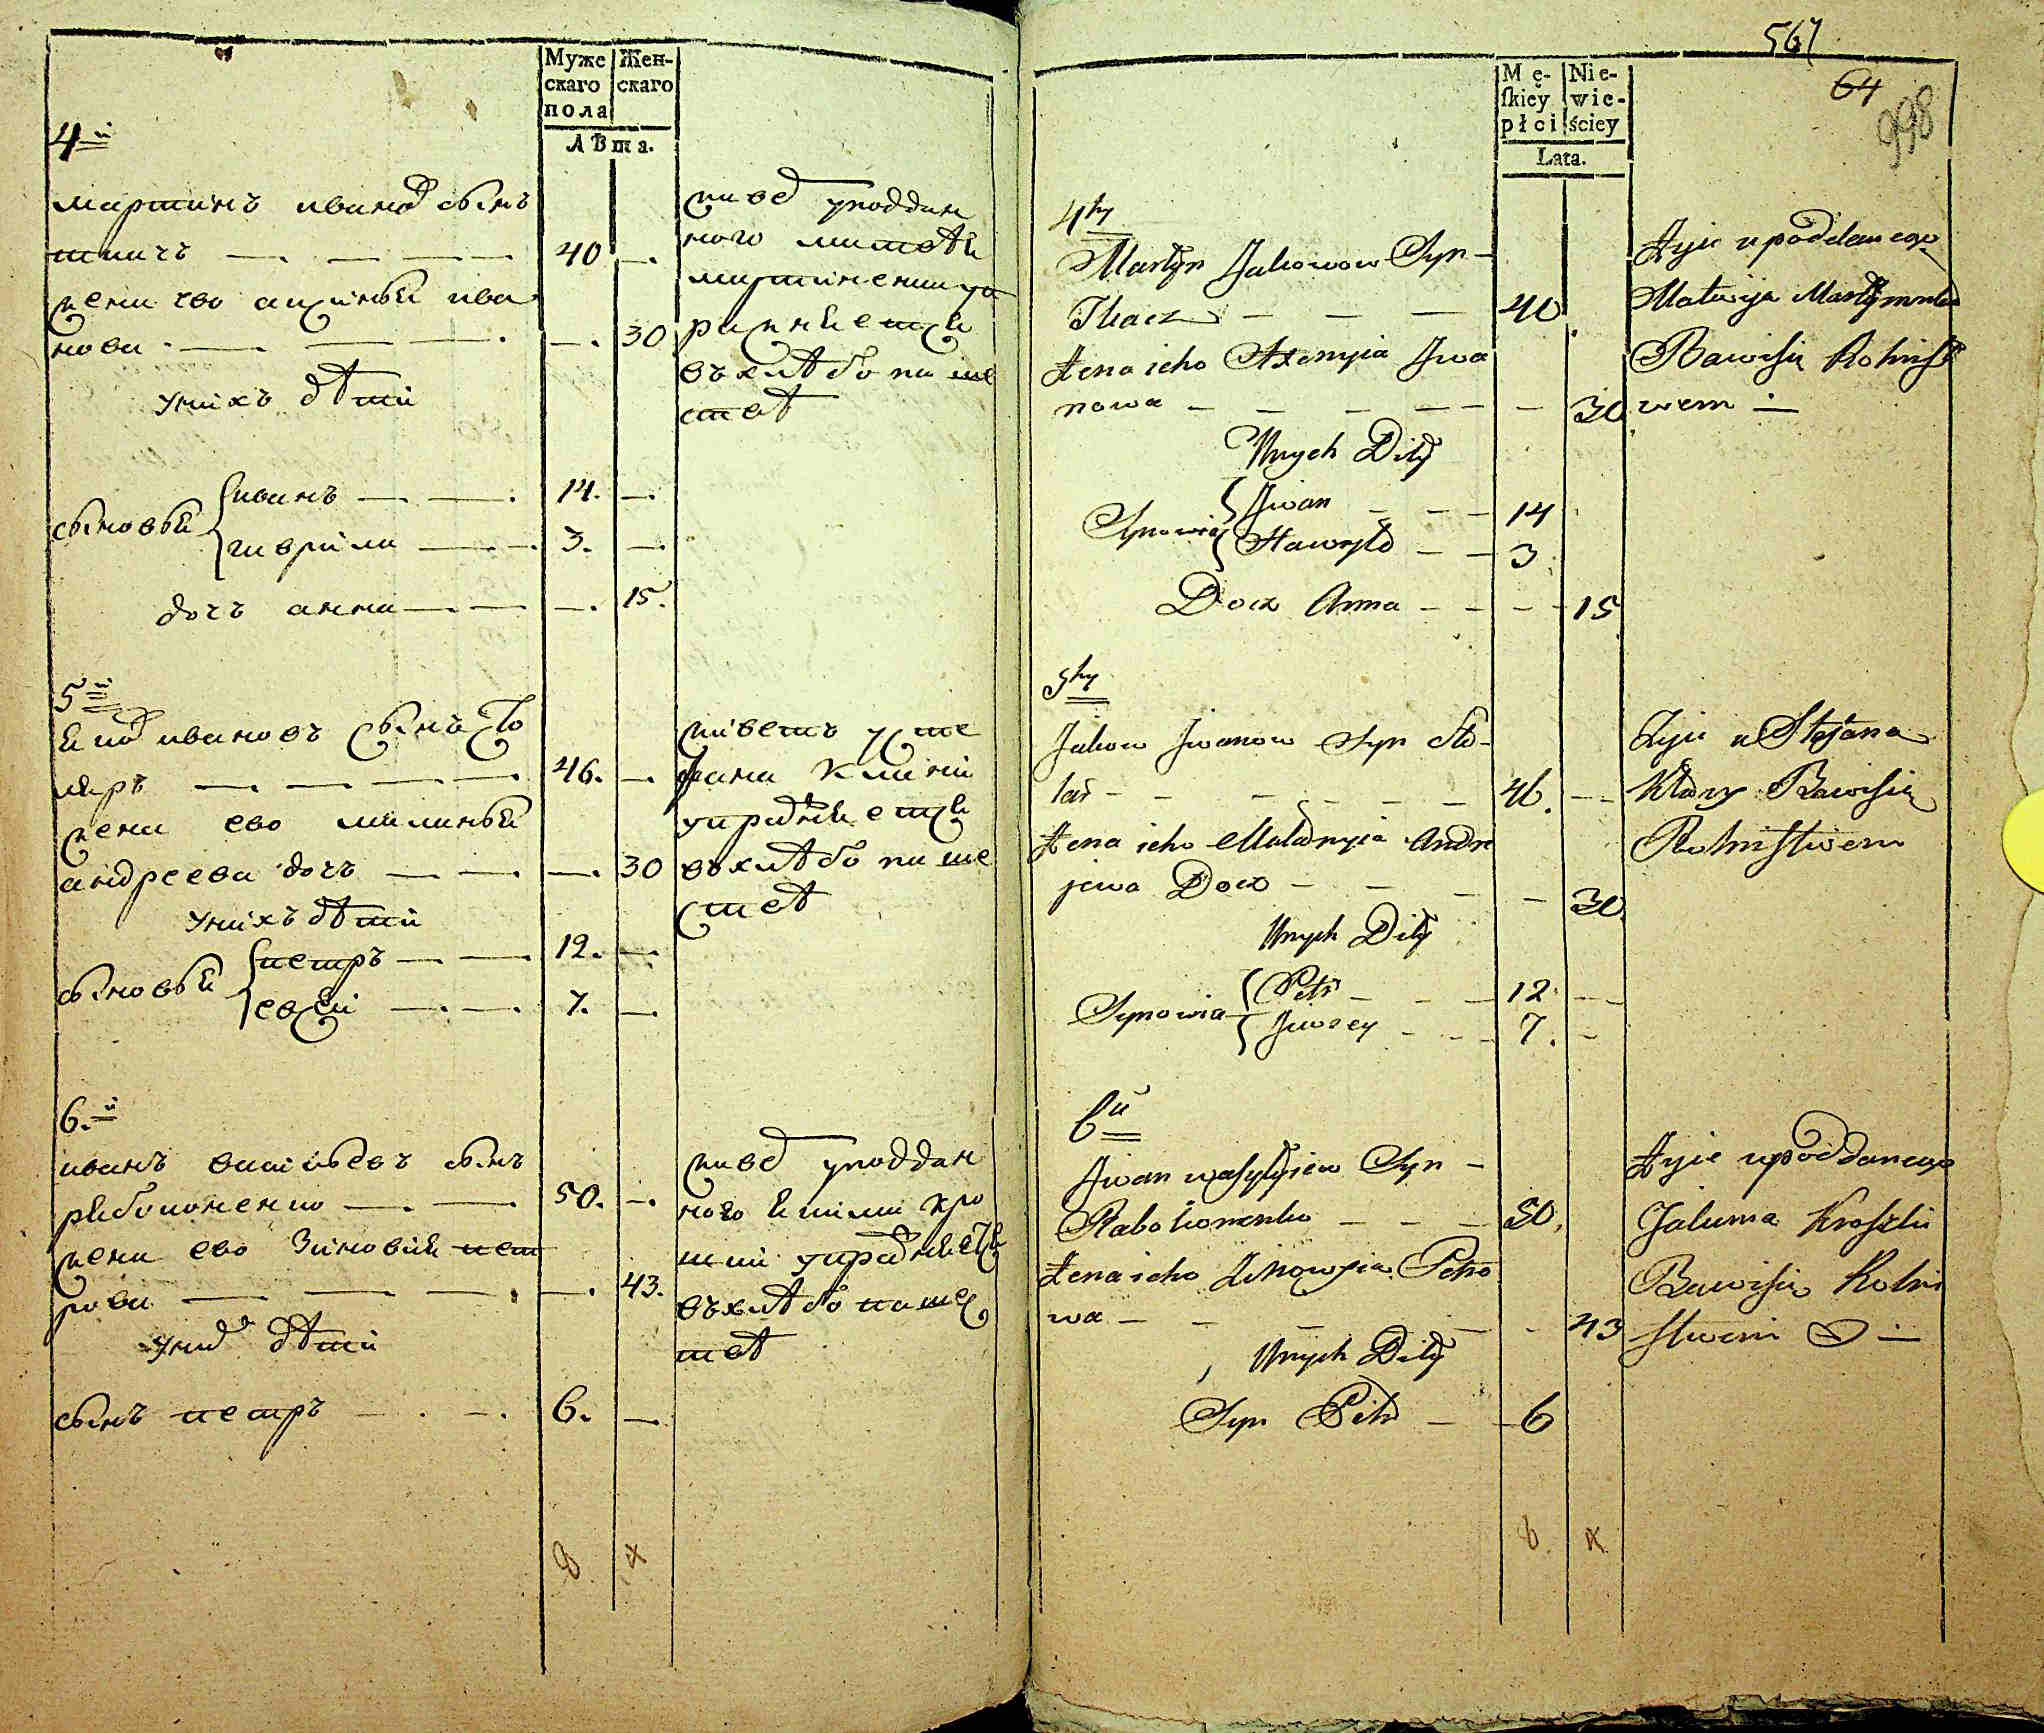 Муже
скаго
пола
Жен-
скаго
Лѣта.
4й
мартинъ ивановъ сынъ
ткачъ — — — — 40 —
жена его аксинья ива
нова — — — — 30
унихъ дѣти
сыновья иванъ — — 14. —
гаврила — — 3. —
дочь анна — — — 15.
живе уподдан
ного матвѣя
мартиненка уп
ражняется
въ хлѣбопаше
ствѣ
5й
яковъ ивановъ сынъ сто
ляръ — — — — 46. —
жена ево маланья
андреева дочь — — — 30
унихъ дѣти
сыновья петръ — — 12. —
евсей — — 7. —
живетъ у сте
фана
упражняется
въ хлѣбопаше
ствѣ
6.й
иванъ васильевъ сынъ
рабоконенко — — 50. —
жена ево зиновия пет
рова — — — — 43.
уних дѣти
сынъ петръ — — 6. —
живе уподдан
ного якима кро
шки упражняется
въ хлѣбопашес
твѣ
8 4
561
64
998
Mę-
ſkiey
płci
Nie-
wie-
ściey
Lata.
4ty
Martyn Jakowow Syn —
Tkacz — — — 40
Żena ieho Axenyia Jwa
nowa — — — — — 30
Unych Dity
Synowia Jwan — — — 14
Hawryło — — 3
Docz Anna — — — 15
Żyie upoddanego
Matwija Martynenka
Bawisię Rolnist
wem —
5ty
Jakow Jwanow Syn Sto-
lar — — — — — 46. —
Żena ieho Małanyia Andre
jewa Docz — — — — 30
Unych Dity
Synowia Petr — — — 12. —
Jewsey — — — 7. —
Żyie u Stefana
Który Bawisię
Rolnistwem
6ti
Jwan wasylyiew Syn —
Rabokonenko — — — 50.
Żena ieho Zinowyia Petro
wa — — — — — 43
Unych Dity
Syn Petr — — 6
Żyie upoddanego
Jakima Kroszki
Bawisię Rolni
stwem —
8 4